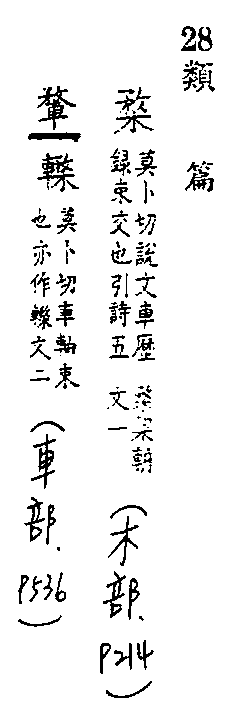 28 類篇
楘
莫卜切說文車歷
録束交也引詩五
楘梁輈
文一
(木部、P214)
莫卜切車軸束
也亦作 文二
(車部、P536)